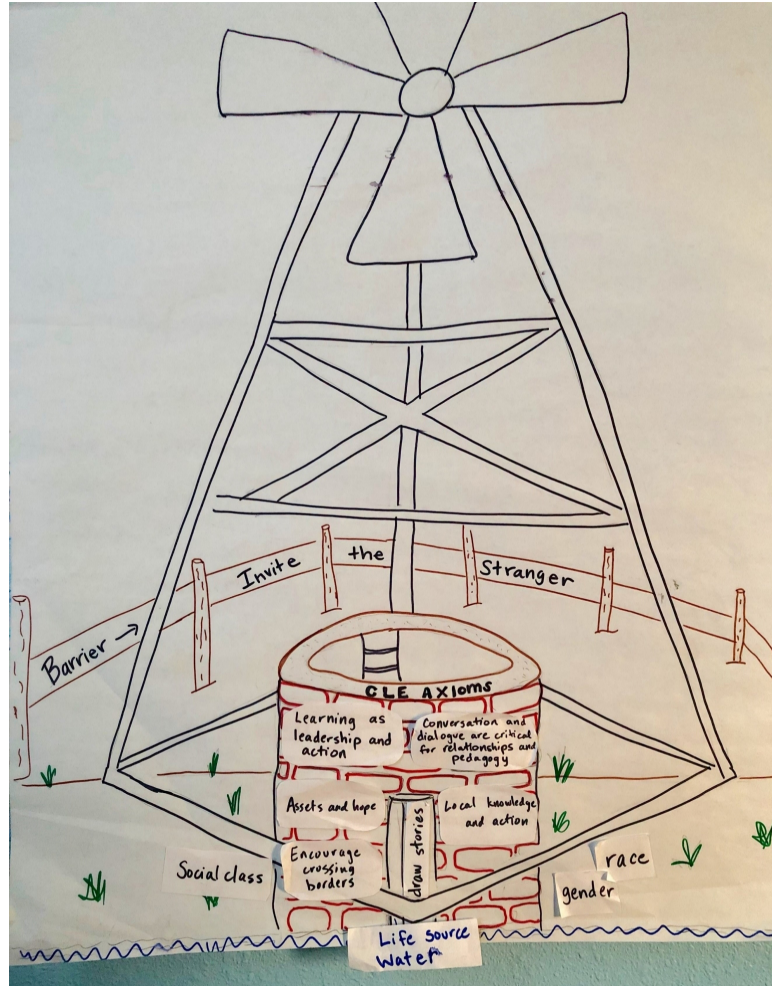 Barrier → Invite the Stranger
CLE AXioms
Learning as
leadership and
action
Conversation and
dialogue are critical
for relationships and
pedagogy
Assets and hope
Local knowledge
and action
draw stories
Encourage
crossing
borders
Social class
race
gender
Life Source
Water